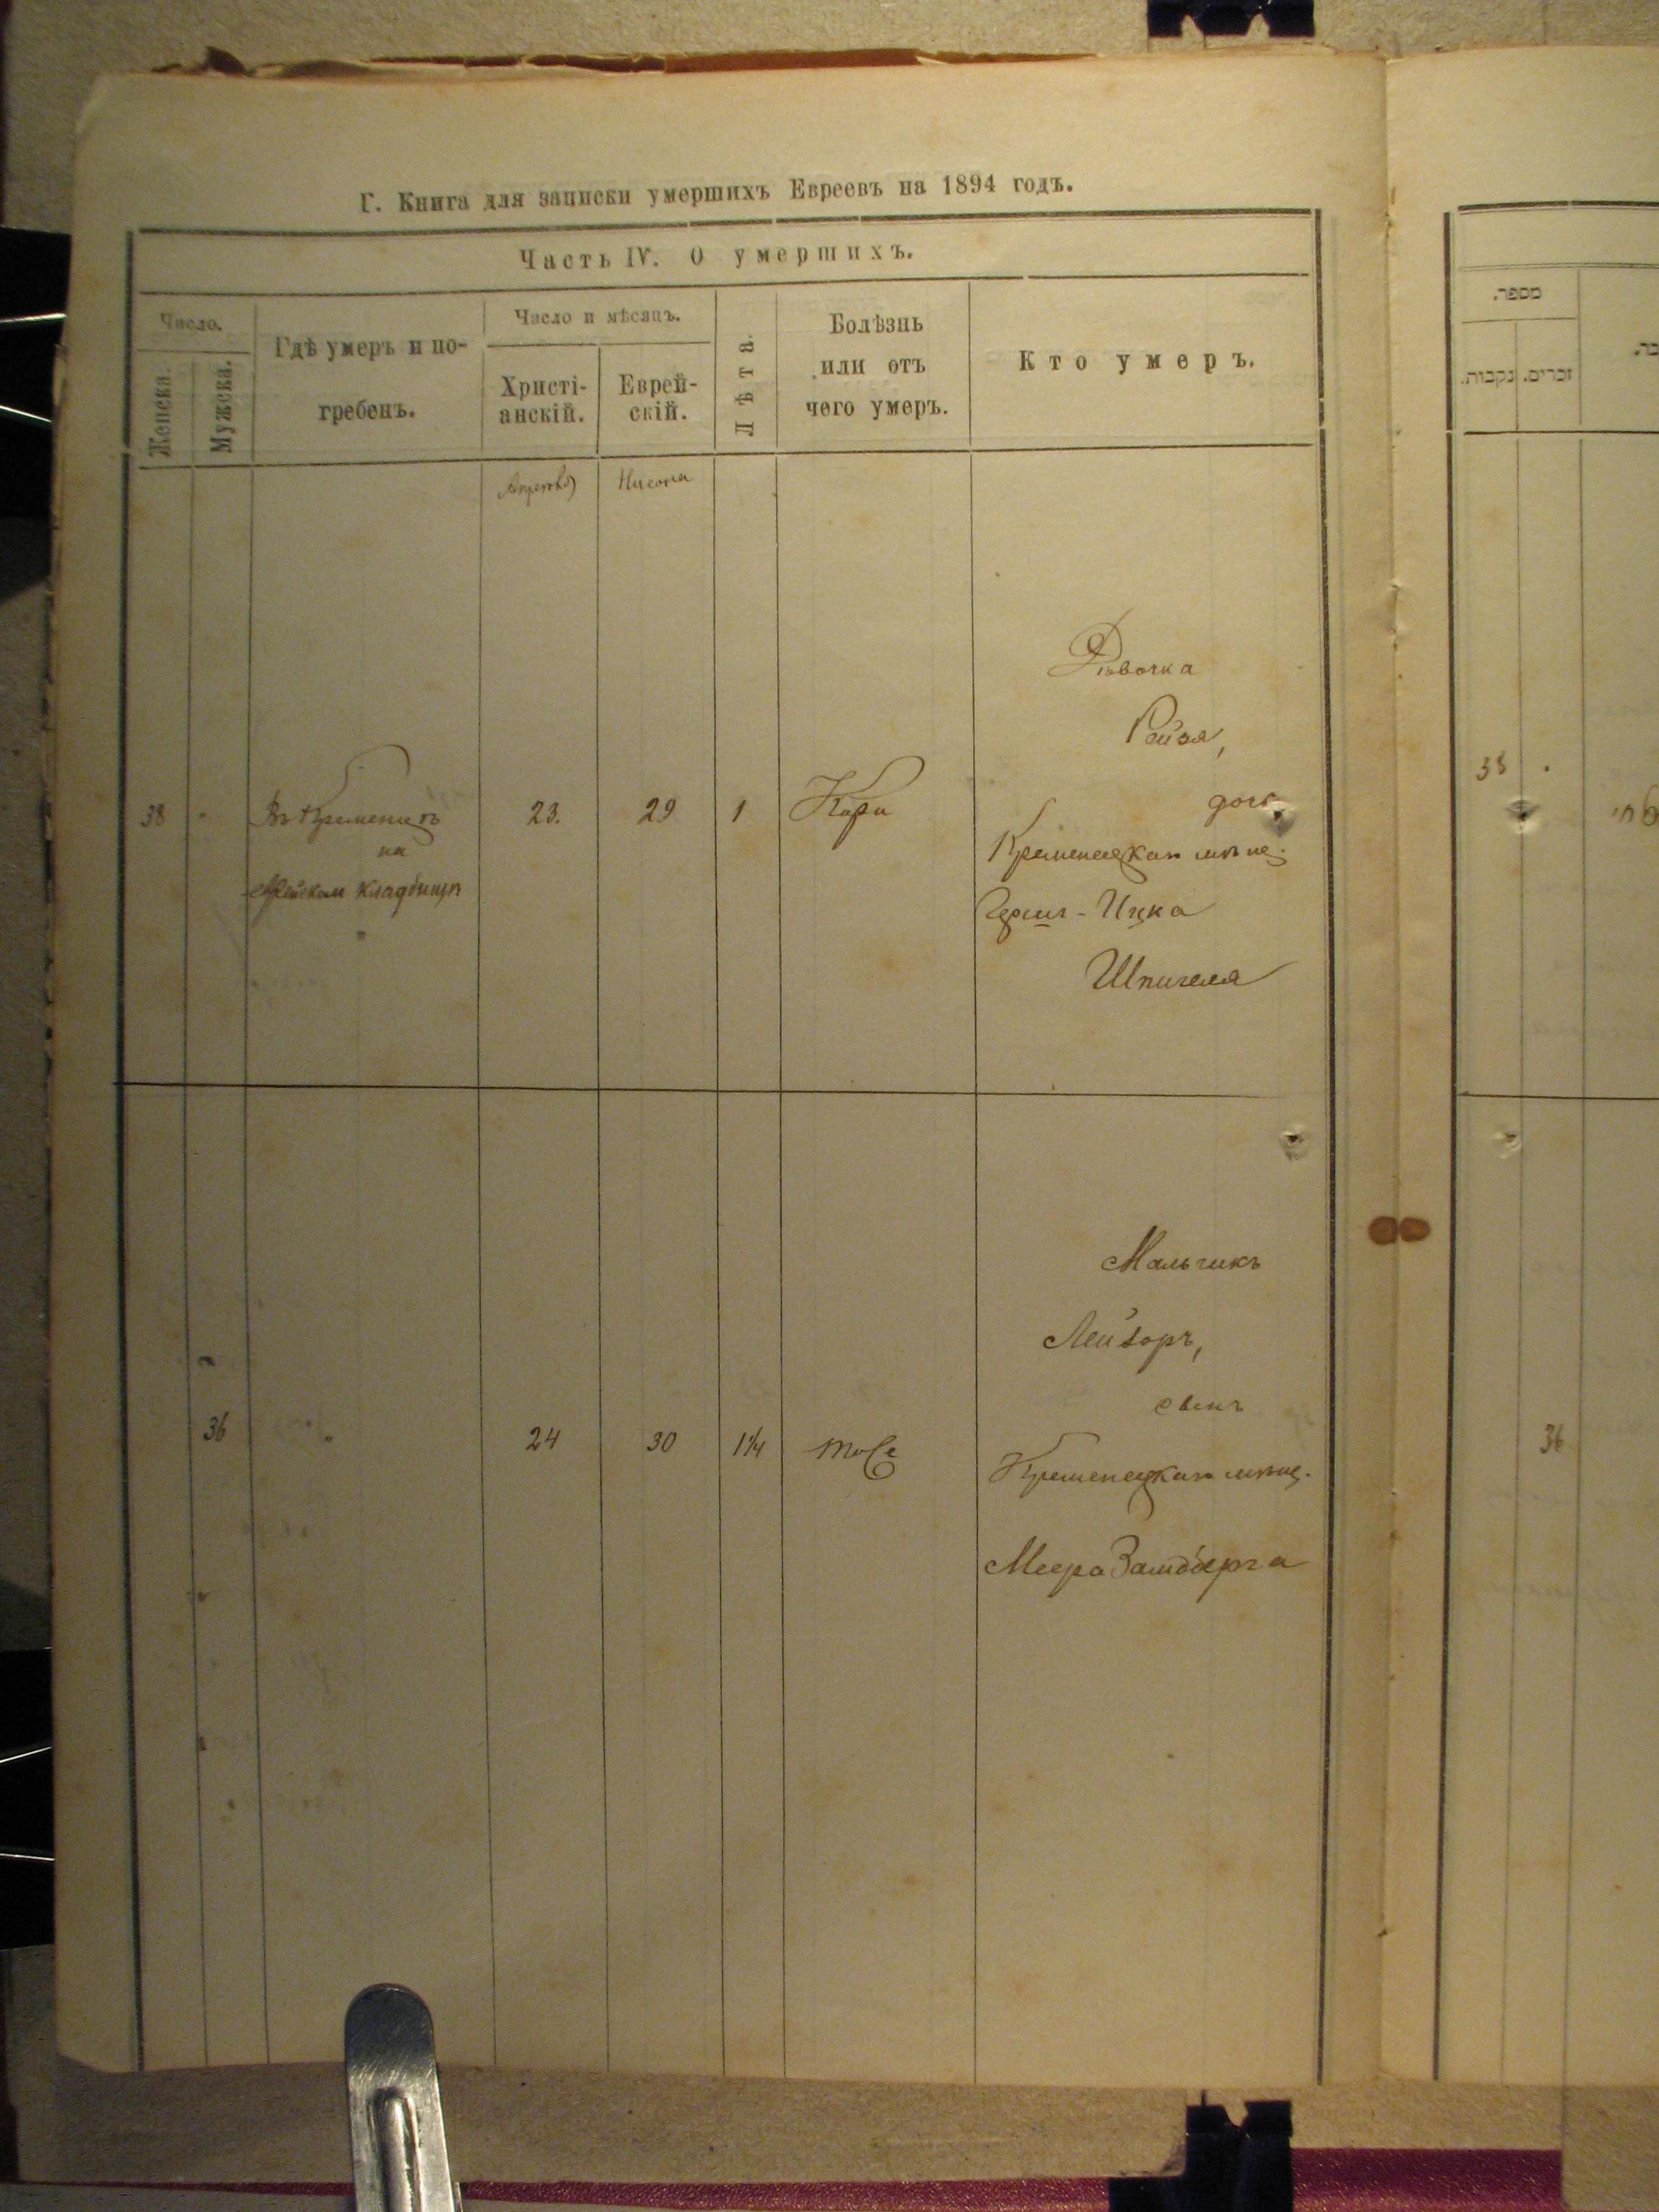 Г. Книга для записки умершихъ Евреевъ на 1894 годъ.
Часть IV. О умершихъ.
Число.
Женска.
Мужска.
Гдѣ умеръ и по-
гребенъ.
Число и мѣсяцъ.
Христі-
анскій.
Еврей-
скій.
Лѣта.
Болѣзнь
или отъ
чего умеръ.
Кто умеръ.
Апреля
Нисона
38
Въ Кременцѣ
на
еврейском кладбищѣ
23.
29
1
Кори
Дѣвочка
Рейзя,
дочь
Кременецкаго мѣщ.
Герш-Ицка
Шпигеля
36
24
30
1¼
тоже
Мальчикъ
Лейзоръ,
сынъ
Кременецкаго мѣщ.
Меера Замберга
מספר.
נקבות.
זכרים.
38
36